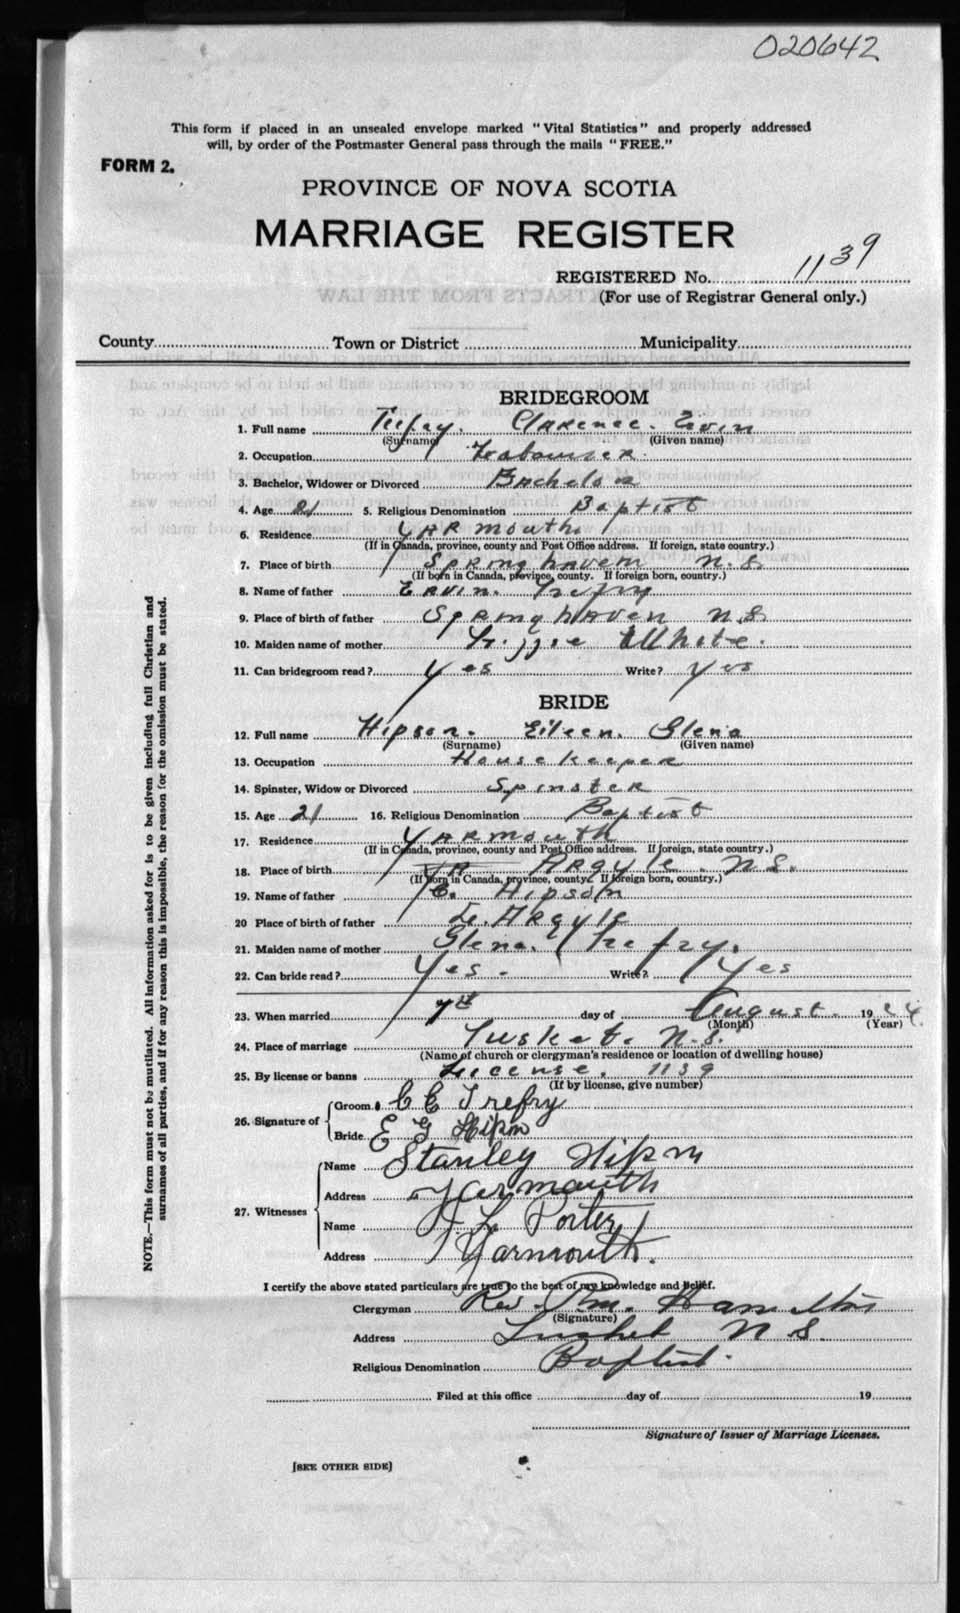 020642
This form if placed in an unsealed envelope marked "Vital Statistics" and properly addressed
will, by order of the Postmaster General pass through the mails "FREE."
FORM 2.
PROVINCE OF NOVA SCOTIA
MARRIAGE REGISTER
REGISTERED No. 1139
(For use of Registrar General only.)
County Town or District Municipality
BRIDEGROOM
1. Full name Trefry. Clarence. Ervin
(Surname) (Given name)
2. Occupation
3. Bachelor, Widower or Divorced Bachelor
4. Age 21 5. Religious Denomination Baptist
6. Residence Yarmouth
(If in Canada, province, county and Post Office address. If foreign, state country.)
7. Place of birth Springhaven N.S.
(If born in Canada, province, county. If foreign born, country.)
8. Name of father Ervin. Trefry
9. Place of birth of father Springhaven N.S.
10. Maiden name of mother White.
11. Can bridegroom read? Yes Write? Yes
BRIDE
12. Full name Hipson. Eileen. Glena
(Surname) (Given name)
13. Occupation Housekeeper
14. Spinster, Widow or Divorced Spinster
15. Age 21 16. Religious Denomination Baptist
17. Residence Yarmouth
(If in Canada, province, county and Post Office address. If foreign, state country.)
18. Place of birth Argyle. N.S.
(If born in Canada, province, county. If foreign born, country.)
19. Name of father C. Hipson
20 Place of birth of father Argyle
21. Maiden name of mother Glena. Trefry.
22. Can bride read? Yes. Write? Yes
23. When married 7th day of August. 1924.
(Month) (Year)
24. Place of marriage Tusket. N.S.
(Name of church or clergyman's residence or location of dwelling house)
25. By license or banns License. 1139
(If by license, give number)
26. Signature of Groom C E Trefry
Bride E G Hipson
27. Witnesses Name Stanley Hipson
Address Yarmouth
Name L Porter
Address Yarmouth.
I certify the above stated particulars are true to the best of my knowledge and belief.
Clergyman Rev. Hamilton
(Signature)
Address Tusket N S.
Religious Denomination Baptist.
Filed at this office day of 19
Signature of Issuer of Marriage Licenses.
[SEE OTHER SIDE]
NOTE.—This form must not be mutilated. All information asked for is to be given including full Christian and
surnames of all parties, and if for any reason this is impossible, the reason for the omission must be stated.